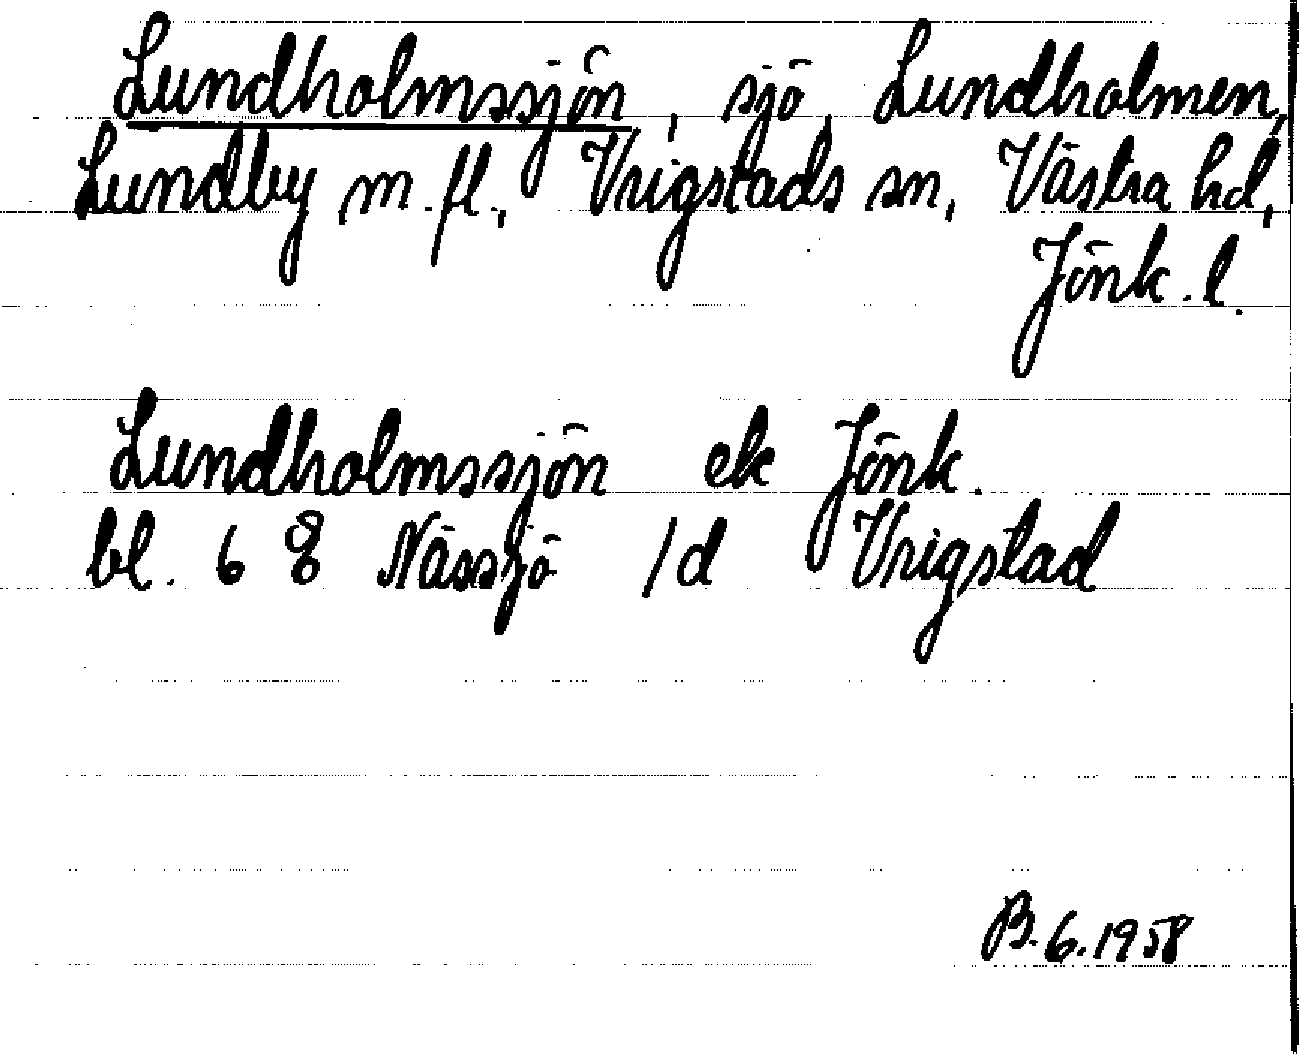 Lundholmssjön, sjö, Lundholmen,
Lundby m.fl., Vrigstads sn, Västra hd,
Jönk.l.
Lundholmssjön ek Jönk.
bl. 6 8 Nässjö /d Vrigstad
B.6.1958